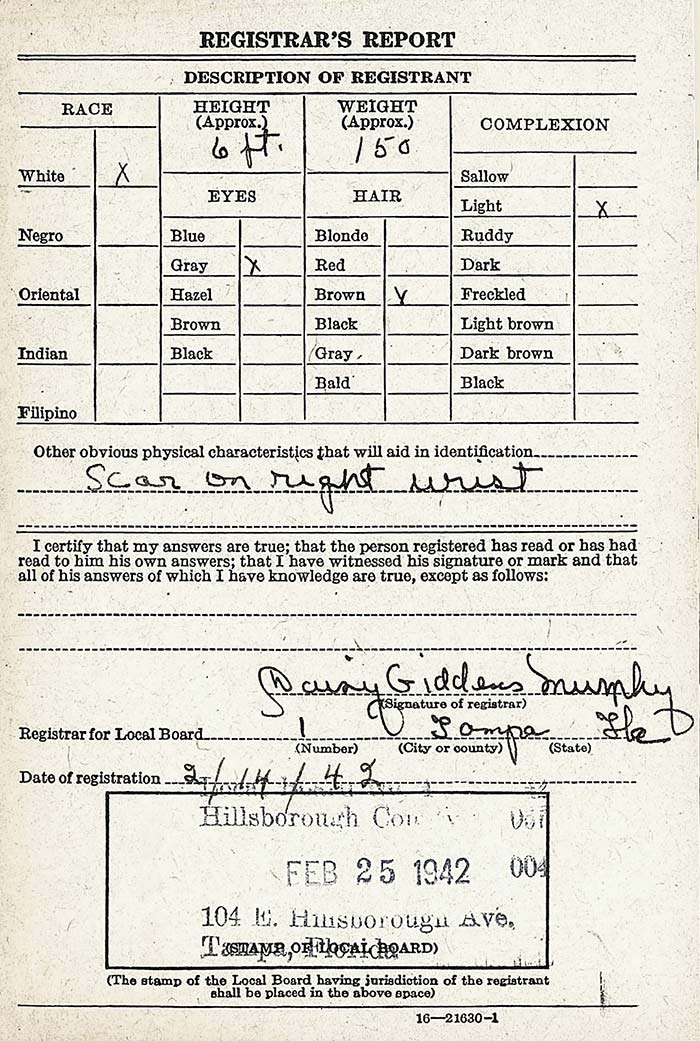 REGISTRAR'S REPORT
DESCRIPTION OF REGISTRANT
RACE
HEIGHT
(Approx.)
6 ft.
WEIGHT
(Approx.)
150
COMPLEXION
White X
Negro
Oriental
Indian
Filipino
EYES
Blue
Gray X
Hazel
Brown
Black
HAIR
Blonde
Red
Brown X
Black
Gray
Bald
Sallow
Light X
Ruddy
Dark
Freckled
Light brown
Dark brown
Black
Other obvious physical characteristics that will aid in identification
Scar on right wrist
I certify that my answers are true; that the person registered has read or has had
read to him his own answers; that I have witnessed his signature or mark and that
all of his answers of which I have knowledge are true, except as follows:
Daisy Giddens Murphy
(Signature of registrar)
Registrar for Local Board 1 Tampa Fla
(Number) (City or county) (State)
Date of registration 2/14/42
Hillsborough
FEB 25 1942 004
104 E. Hillsborough Ave.
Tampa, Florida
(STAMP OF LOCAL BOARD)
(The stamp of the Local Board having jurisdiction of the registrant
shall be placed in the above space)
16—21630-1